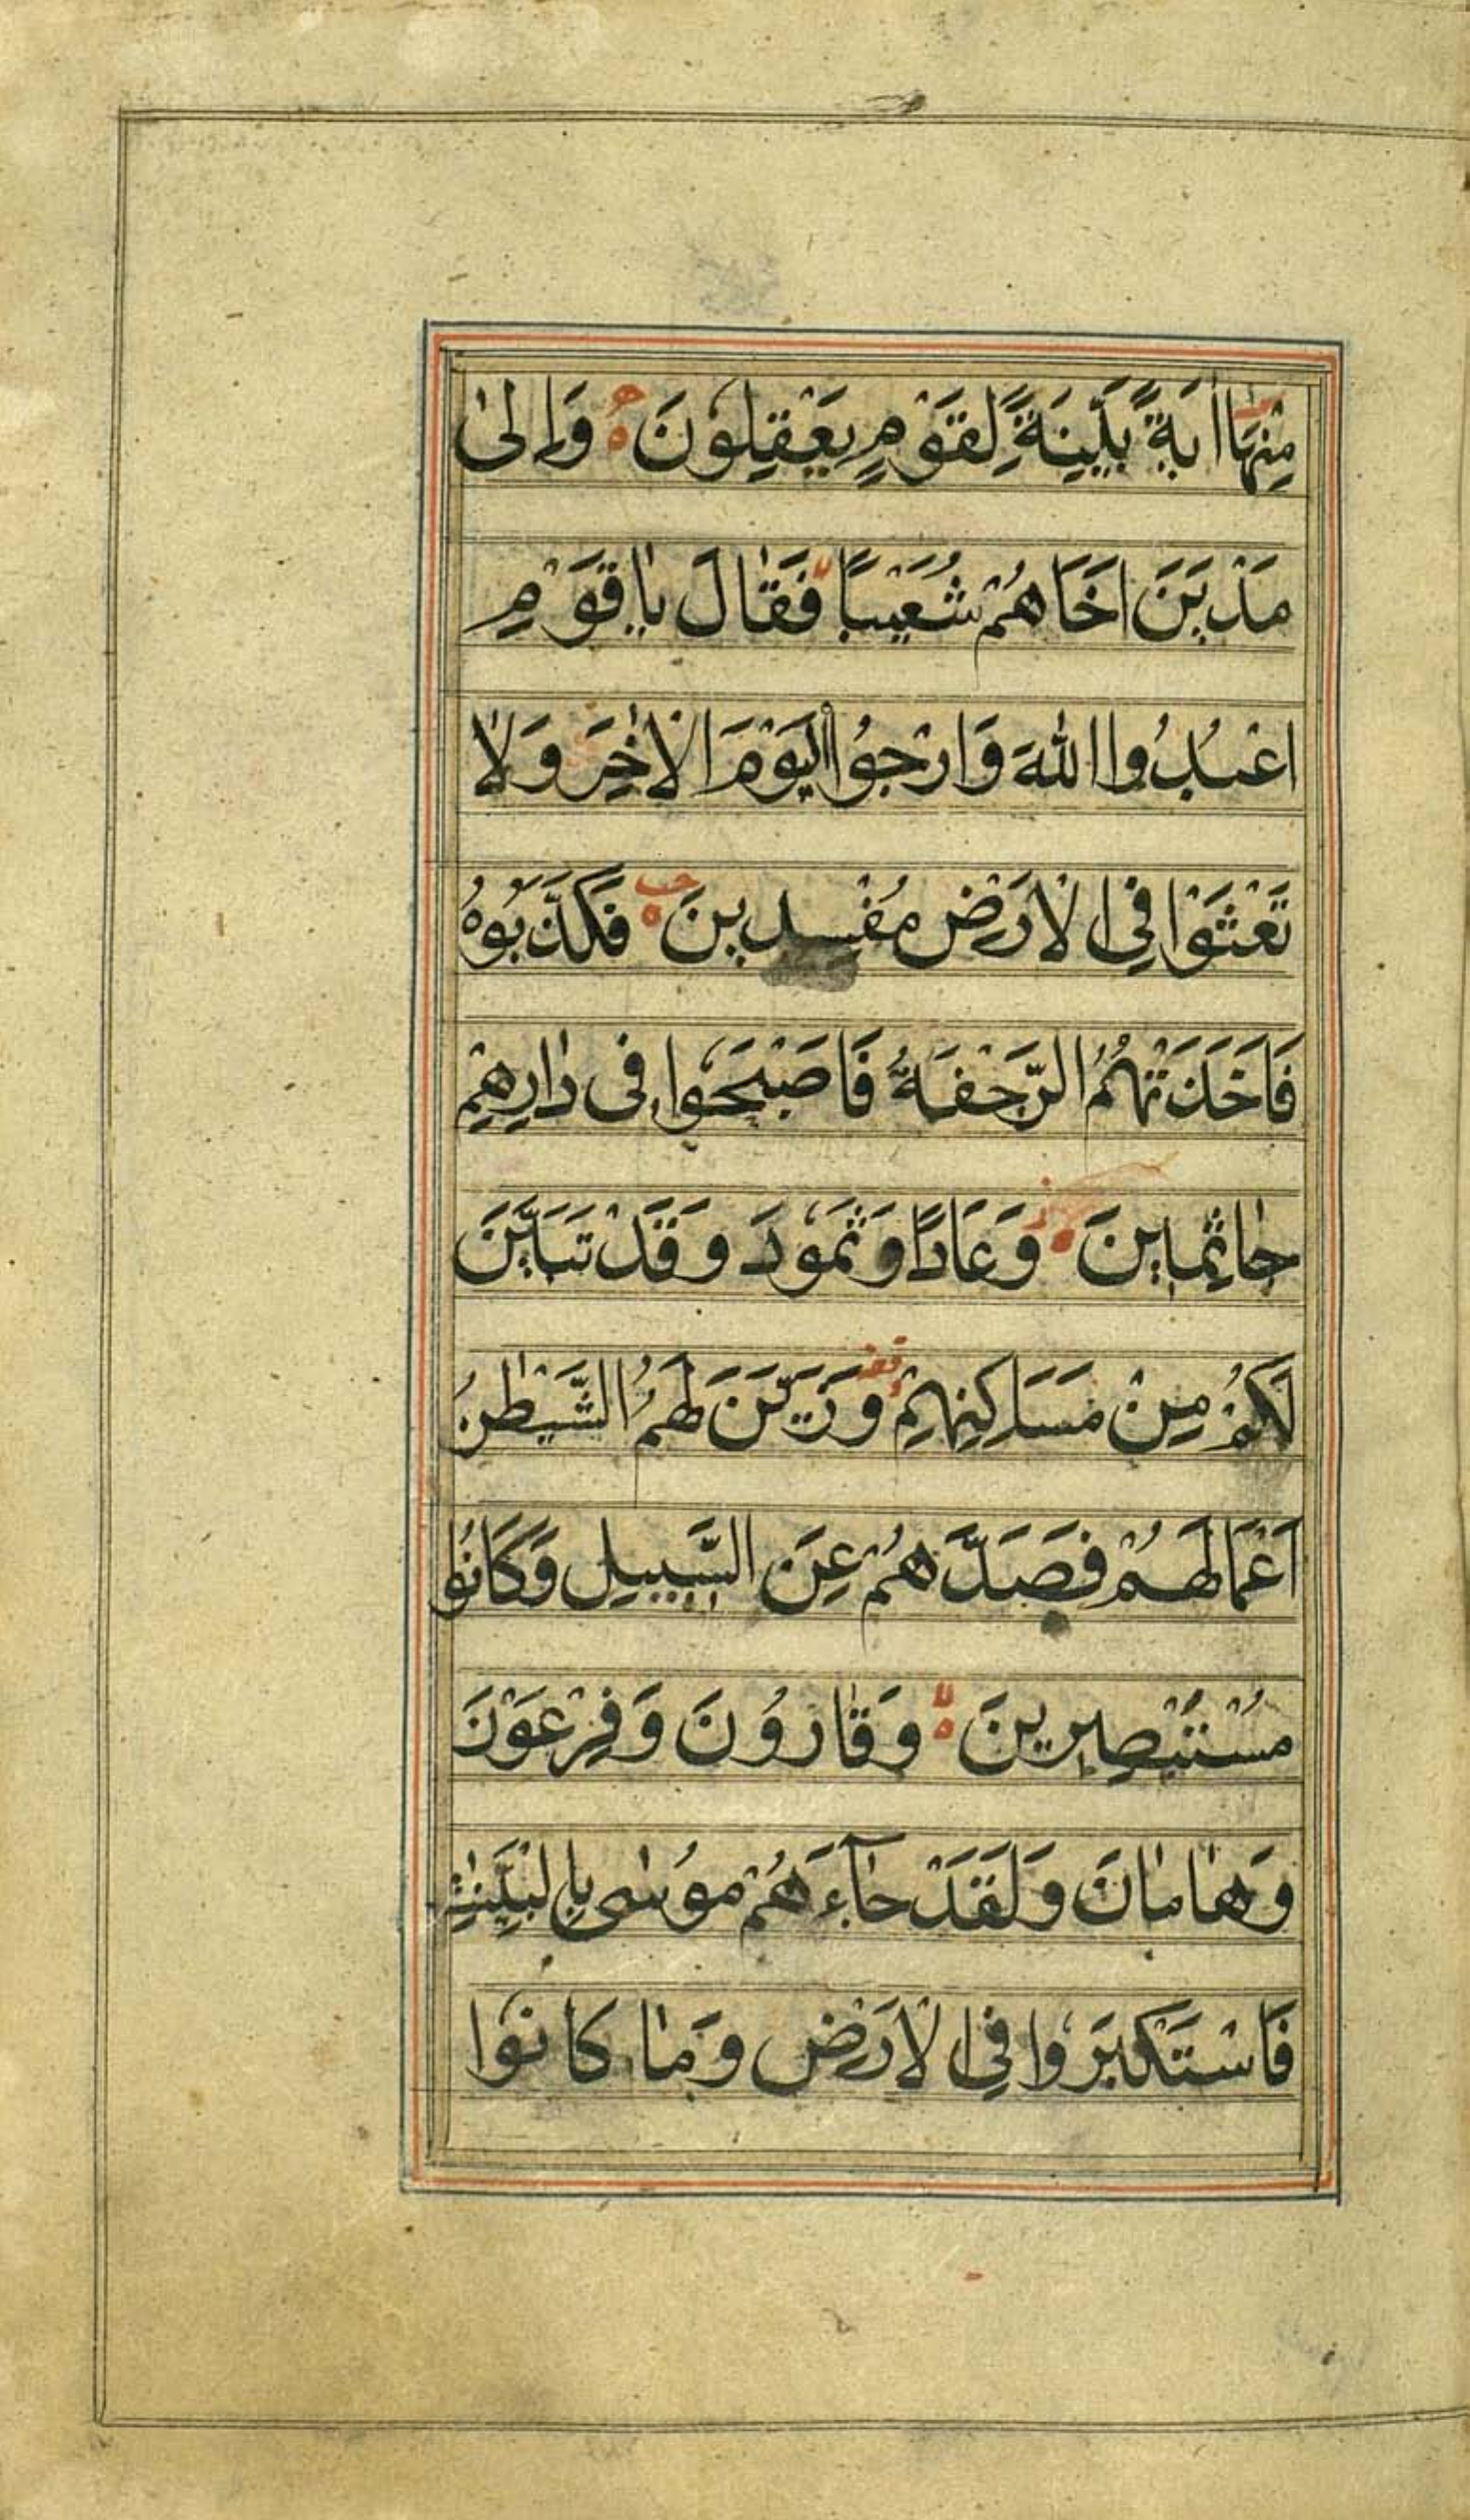 مِنْهَا اٰيَةً بَيِّنَةً لِقَوْمٍ يَعْقِلُونَ ه وَاِلىٰ
مَدْيَنَ اَخَاهُمْ شُعَيْبًا فَقَالَ يٰاقَوْمِ
اعْبُدُوا اللهَ وَارْجُوا الْيَوْمَ الْاٰخِرَ وَلٰا
تَعْثَوْا فِي الْاَرْضِ مُفْسِدِينَ ه فَكَذَّبُوهُ
فَاَخَذَتْهُمُ الرَّجْفَةُ فَاَصْبَحُوا فِى دٰارِهِمْ
جٰاثِمِينَ ه وَعَادًا وَثَمُودَ وَقَدْ تَبَيَّنَ
لَكُمْ مِنْ مَسَاكِنِهِمْ قف وَزَيَّنَ لَهُمُ الشَّيْطٰنُ
اَعْمَالَهُمْ فَصَدَّهُمْ عَنِ السَّبِيلِ وَكَانُوا
مُسْتَبْصِرِينَ ه لا وَقٰارُونَ وَفِرْعَوْنَ
وَهٰامٰانَ وَلَقَدْ جٰآءَهُمْ مُوسٰى بِالْبَيِّنٰتِ
فَاسْتَكْبَرُوا فِي الْاَرْضِ وَمٰا كَانُوا